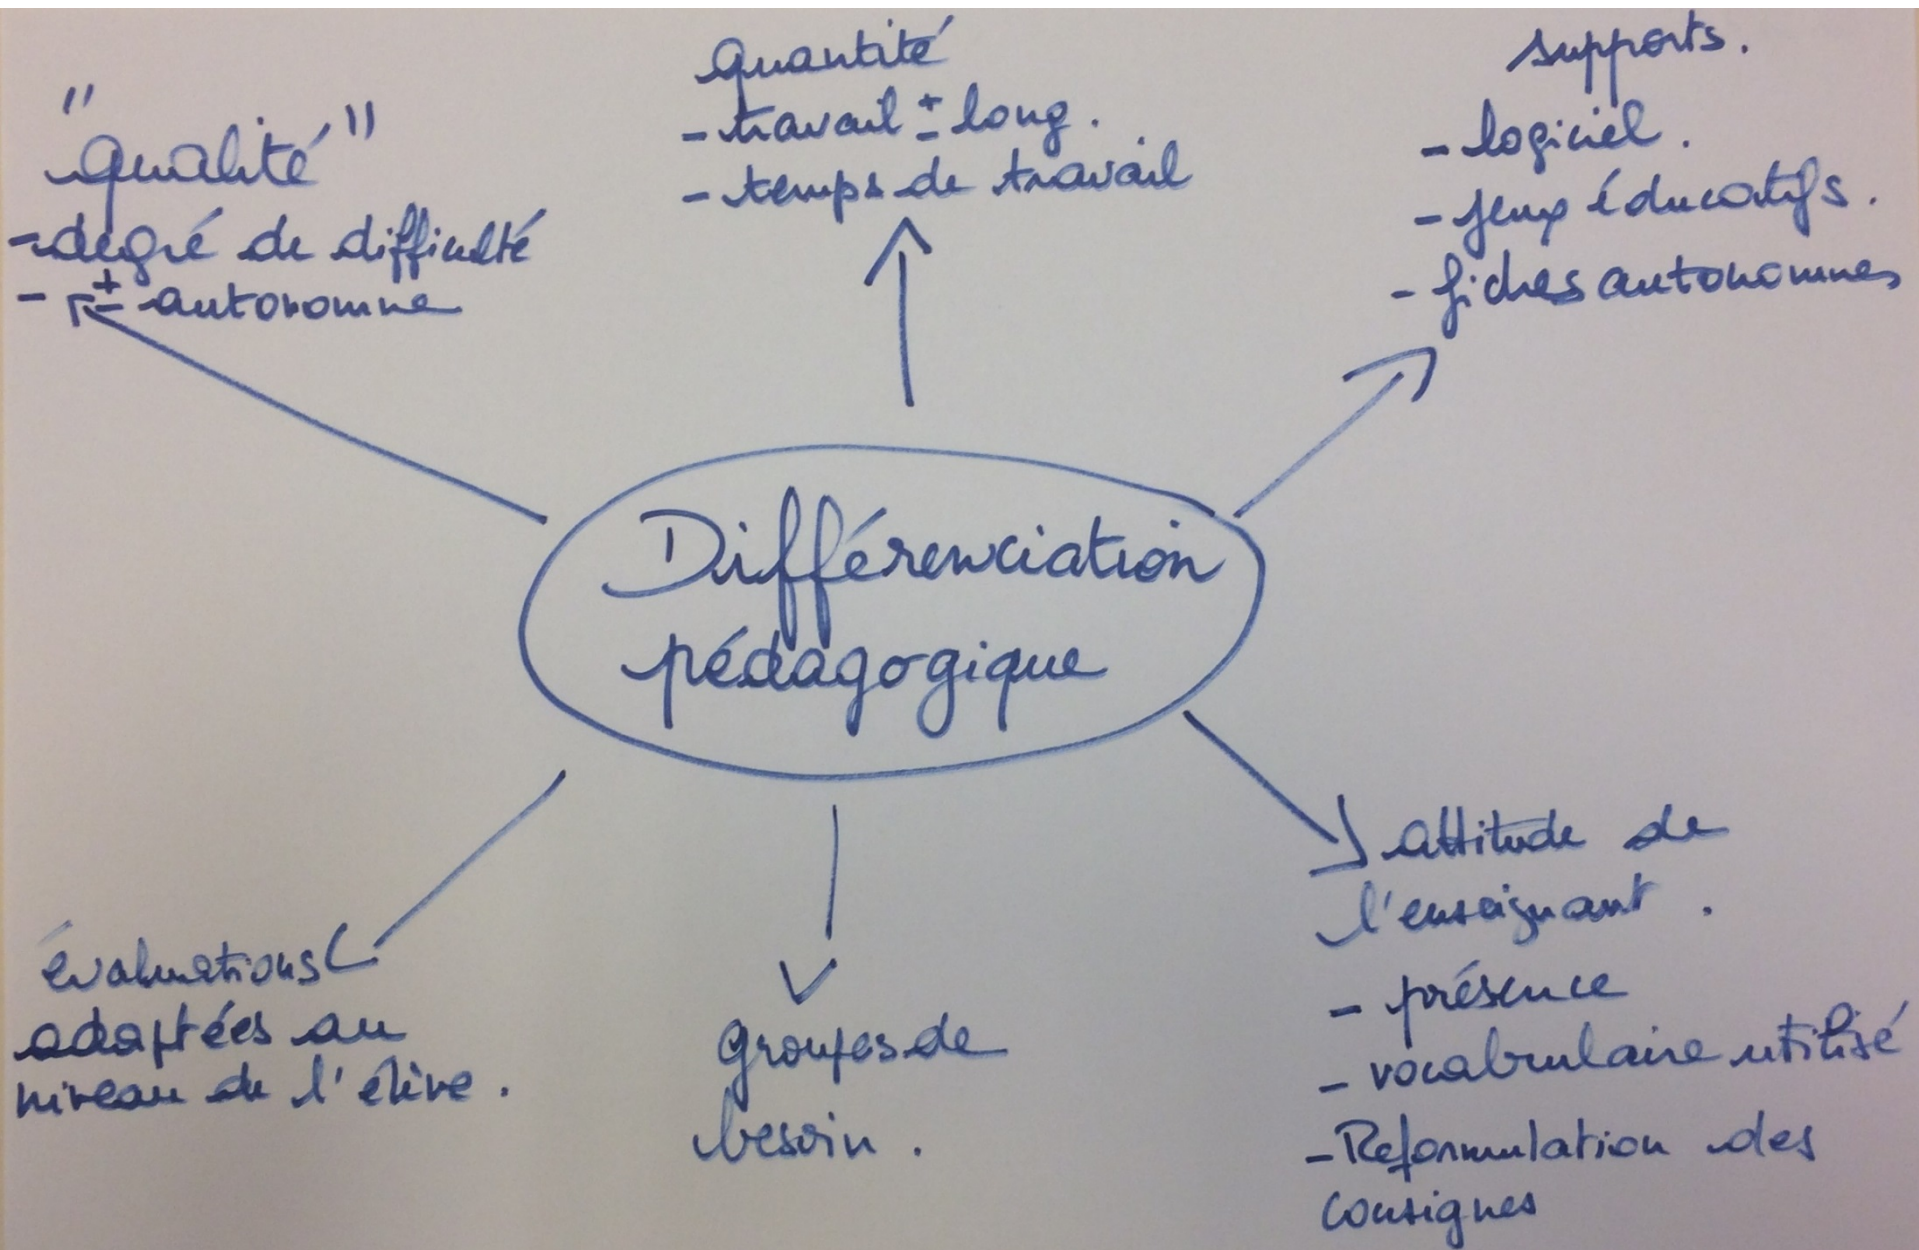 "qualité"
- degré de difficulté
- ± autonomne
quantité
- travail ± long.
- temps de travail
supports.
- logiciel.
- jeux éducatifs.
- fiches autonomnes
Différenciation
pédagogique
évaluations
adaptées au
niveau de l'élève.
groupes de
besoin.
attitude de
l'enseignant.
- présence
- vocabulaire utilisé
- Reformulation des
consignes